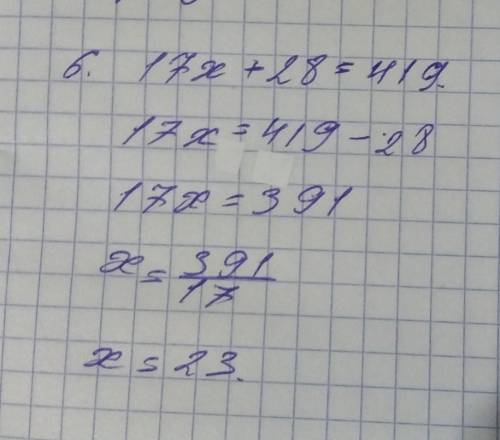 6. 17x + 28 = 419.
17x = 419 - 28
17x = 391
x = 391/17
x = 23.